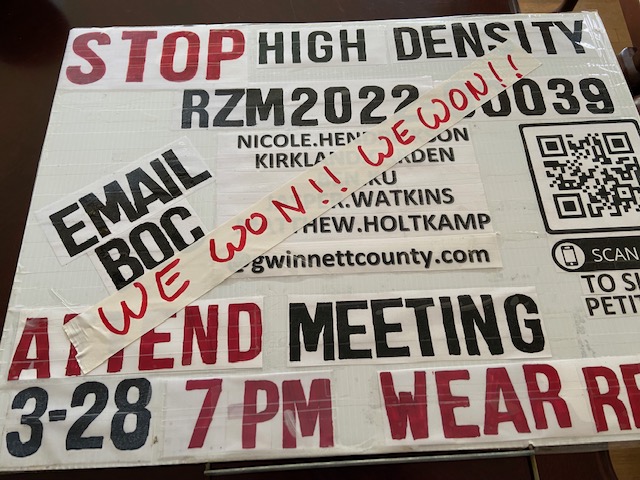 STOP HIGH DENSITY
RZM2022 0039
NICOLE.HEN ON
KIRKLAND RDEN
KU
WATKINS
HEW.HOLTKAMP
gwinnettcounty.com
EMAIL
BOC
WE WON!! WE WON!!
SCAN
TO
PETI
ATTEND MEETING
3-28 7 PM WEAR RE